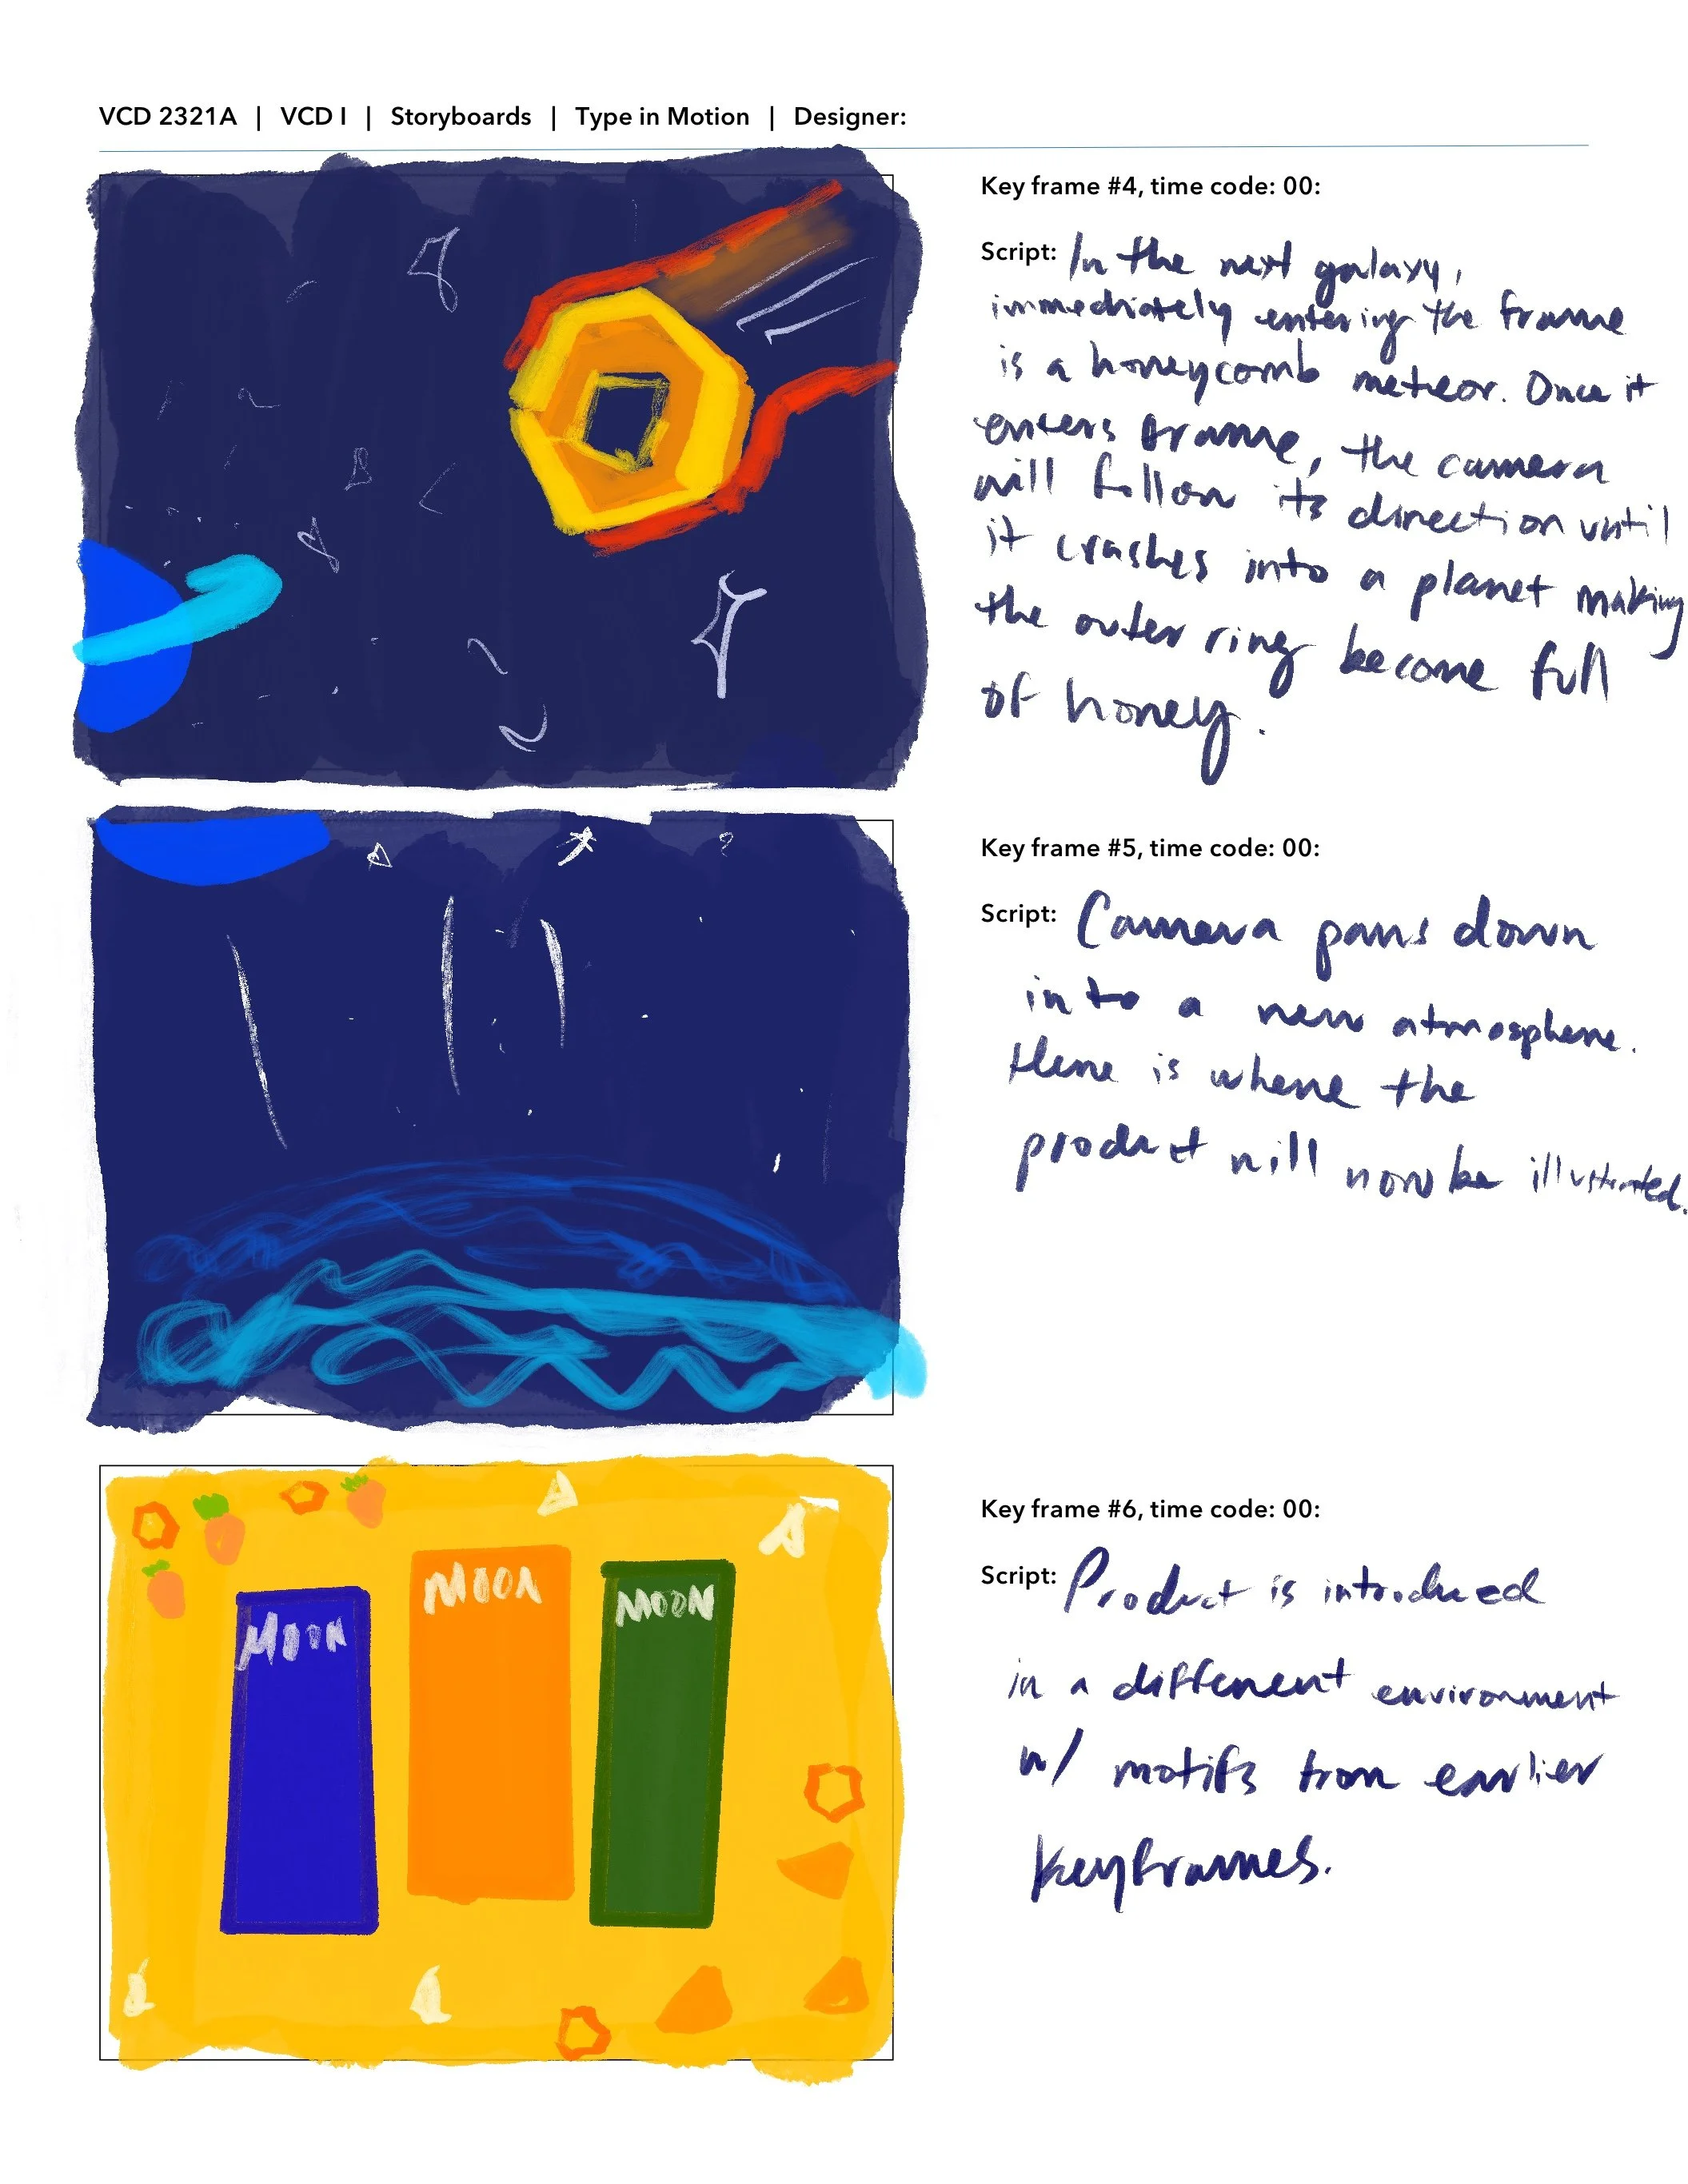 VCD 2321A | VCD I | Storyboards | Type in Motion | Designer:
Key frame #4, time code: 00:
Script: In the next galaxy,
immediately entering the frame
is a honeycomb meteor. Once it
enters frame, the camera
will follow its direction until
it crashes into a planet making
the outer ring become full
of honey.
Key frame #5, time code: 00:
Script: Camera pans down
into a new atmosphere.
Here is where the
product will now be illustrated.
MOON
MOON
MOON
Key frame #6, time code: 00:
Script: Product is introduced
in a different environment
w/ motifs from earlier
keyframes.